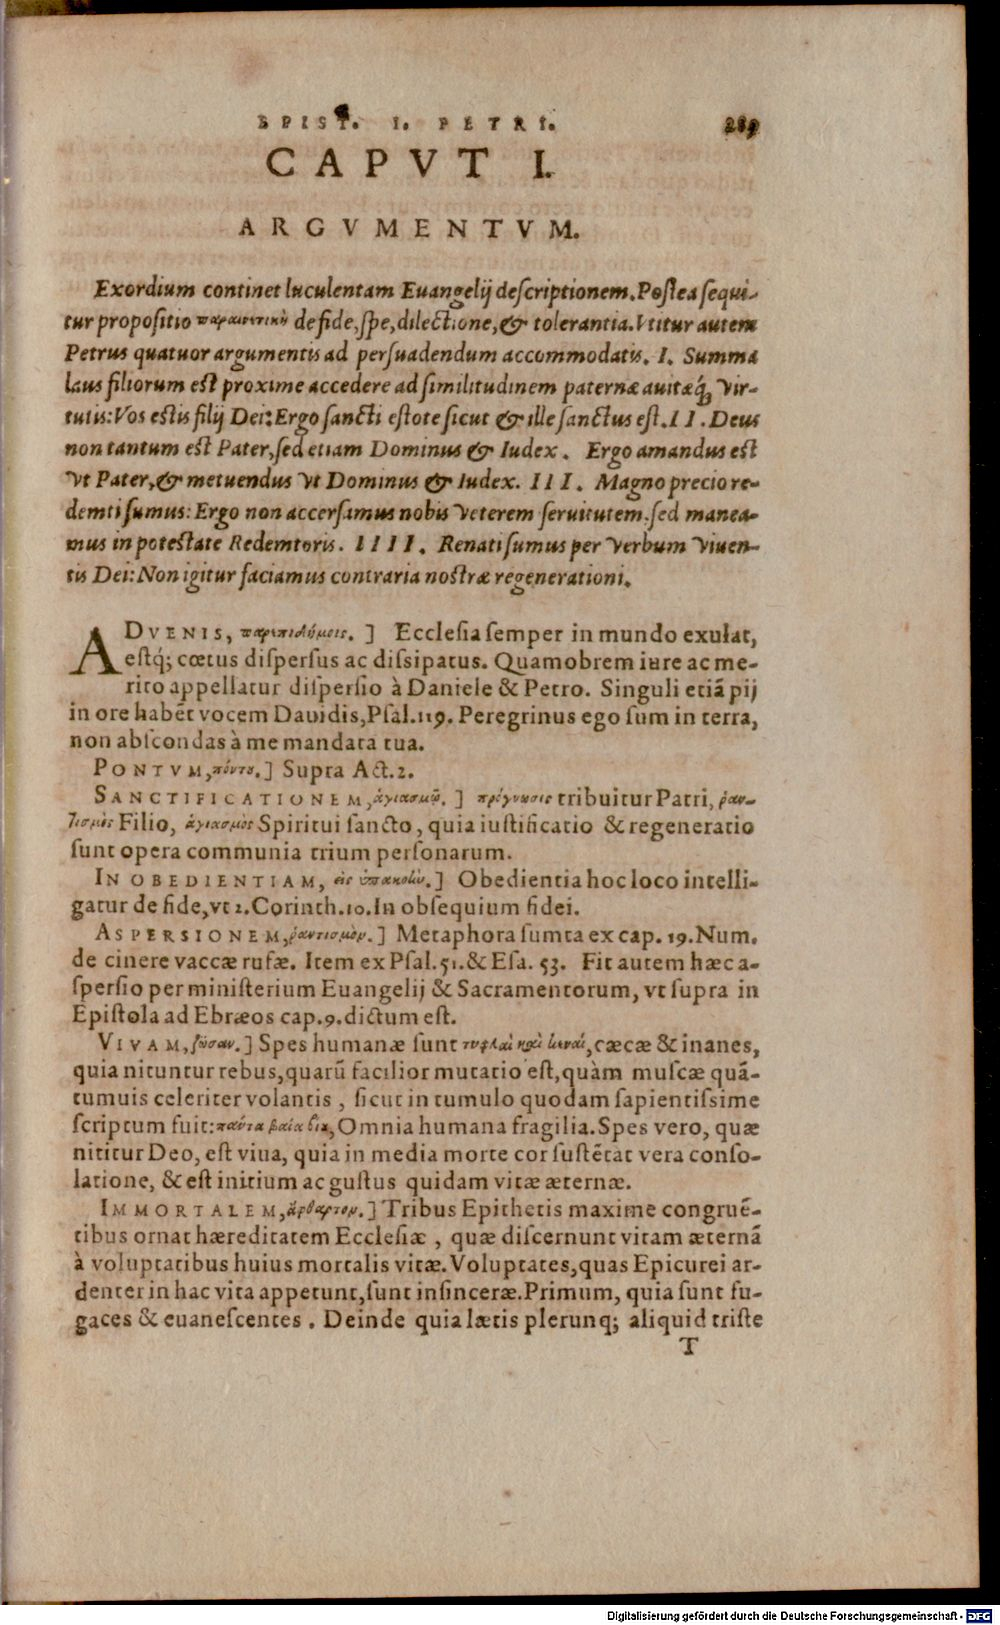 EPIST. I. PETRI. 289
CAPVT I.
ARGVMENTVM.
Exordium continet luculentam Euangelij descriptionem. Postea sequi-
tur propositio παραινετικὴ de fide, spe, dilectione, & tolerantia. Vtitur autem
Petrus quatuor argumentis ad persuadendum accommodatis. I. Summa
laus filiorum est proxime accedere ad similitudinem paternæ auitæq́ꝫ vir-
tutis: Vos estis filij Dei: Ergo sancti estote sicut & ille sanctus est. II. Deus
non tantum est Pater, sed etiam Dominus & Iudex. Ergo amandus est
vt Pater, & metuendus vt Dominus & Iudex. III. Magno precio re-
demti sumus: Ergo non accersamus nobis veterem seruitutem, sed manea-
mus in potestate Redemtoris. IIII. Renati sumus per verbum viuen-
tis Dei: Non igitur faciamus contraria nostræ regenerationi.
ADVENIS, παρεπιδήμοις.] Ecclesia semper in mundo exulat,
estq́; cœtus dispersus ac dissipatus. Quamobrem iure ac me-
rito appellatur dispersio à Daniele & Petro. Singuli etiã pij
in ore habẽt vocem Dauidis, Psal. 119. Peregrinus ego sum in terra,
non abscondas à me mandata tua.
PONTVM, πόντου.] Supra Act. 2.
SANCTIFICATIONEM, ἁγιασμῷ.] πρόγνωσις tribuitur Patri, ῥαν-
τισμὸς Filio, ἁγιασμὸς Spiritui sancto, quia iustificatio & regeneratio
sunt opera communia trium personarum.
IN OBEDIENTIAM, εἰς ὑπακοὴν.] Obedientia hoc loco intelli-
gatur de fide, vt 2. Corinth. 10. In obsequium fidei.
ASPERSIONEM, ῥαντισμὸν.] Metaphora sumta ex cap. 19. Num.
de cinere vaccæ rufæ. Item ex Psal. 51. & Esa. 53. Fit autem hæc a-
spersio per ministerium Euangelij & Sacramentorum, vt supra in
Epistola ad Ebræos cap. 9. dictum est.
VIVAM, ζῶσαν.] Spes humanæ sunt τυφλαὶ καὶ κεναί, cæcæ & inanes,
quia nituntur rebus, quarũ facilior mutatio est, quàm muscæ quã-
tumuis celeriter volantis, sicut in tumulo quodam sapientissime
scriptum fuit: πάντα βαία βία, Omnia humana fragilia. Spes vero, quæ
nititur Deo, est viua, quia in media morte cor sustẽtat vera conso-
latione, & est initium ac gustus quidam vitæ æternæ.
IMMORTALEM, ἄφθαρτον.] Tribus Epithetis maxime congruẽ-
tibus ornat hæreditatem Ecclesiæ, quæ discernunt vitam æternã
à voluptatibus huius mortalis vitæ. Voluptates, quas Epicurei ar-
denter in hac vita appetunt, sunt insinceræ. Primum, quia sunt fu-
gaces & euanescentes. Deinde quia lætis plerunq; aliquid triste
T
Digitalisierung gefördert durch die Deutsche Forschungsgemeinschaft - DFG